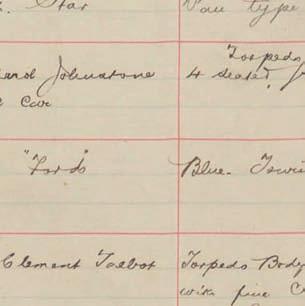 Star
Van type
Torpedo
and Johnstone
4 seated,
Car
"Ford"
Blue. Touri
Clement Talbot
Torpedo Body
with fine C